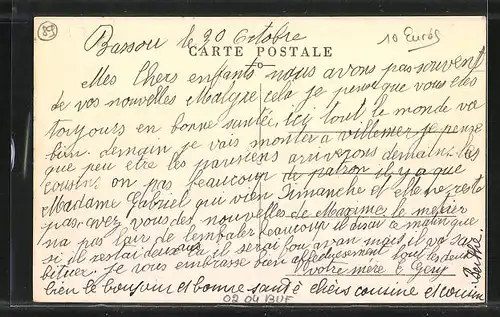 89
10 Euros
Bassou le 20 Octobre
CARTE POSTALE
Mes Chers enfants nous avons pas souvent
de vos nouvelles Malgre cela je pense que vous etes
toujours en bonne santée, icy tout le monde va
bien. demain je vais monter a villemer je pense
que peu etre les parisiens ariverons demain. les
cousins on pas beaucoup de patron il y a que
Madame Gabriel qui vien Dimanche et elle ne reste
pas. avez vous des nouvelles de Maxime, le metier
na pas lair de lembaler beaucoup il disai ce matin que
si il restai deux ans la, il serai fou avan mais il va sa
bituer. je vous embrasse bien affectuesement tout les deux
votre mère & Gery
Berthe
bien le bonjour et bonne santé chers cousine et cousin
02 04 BUF